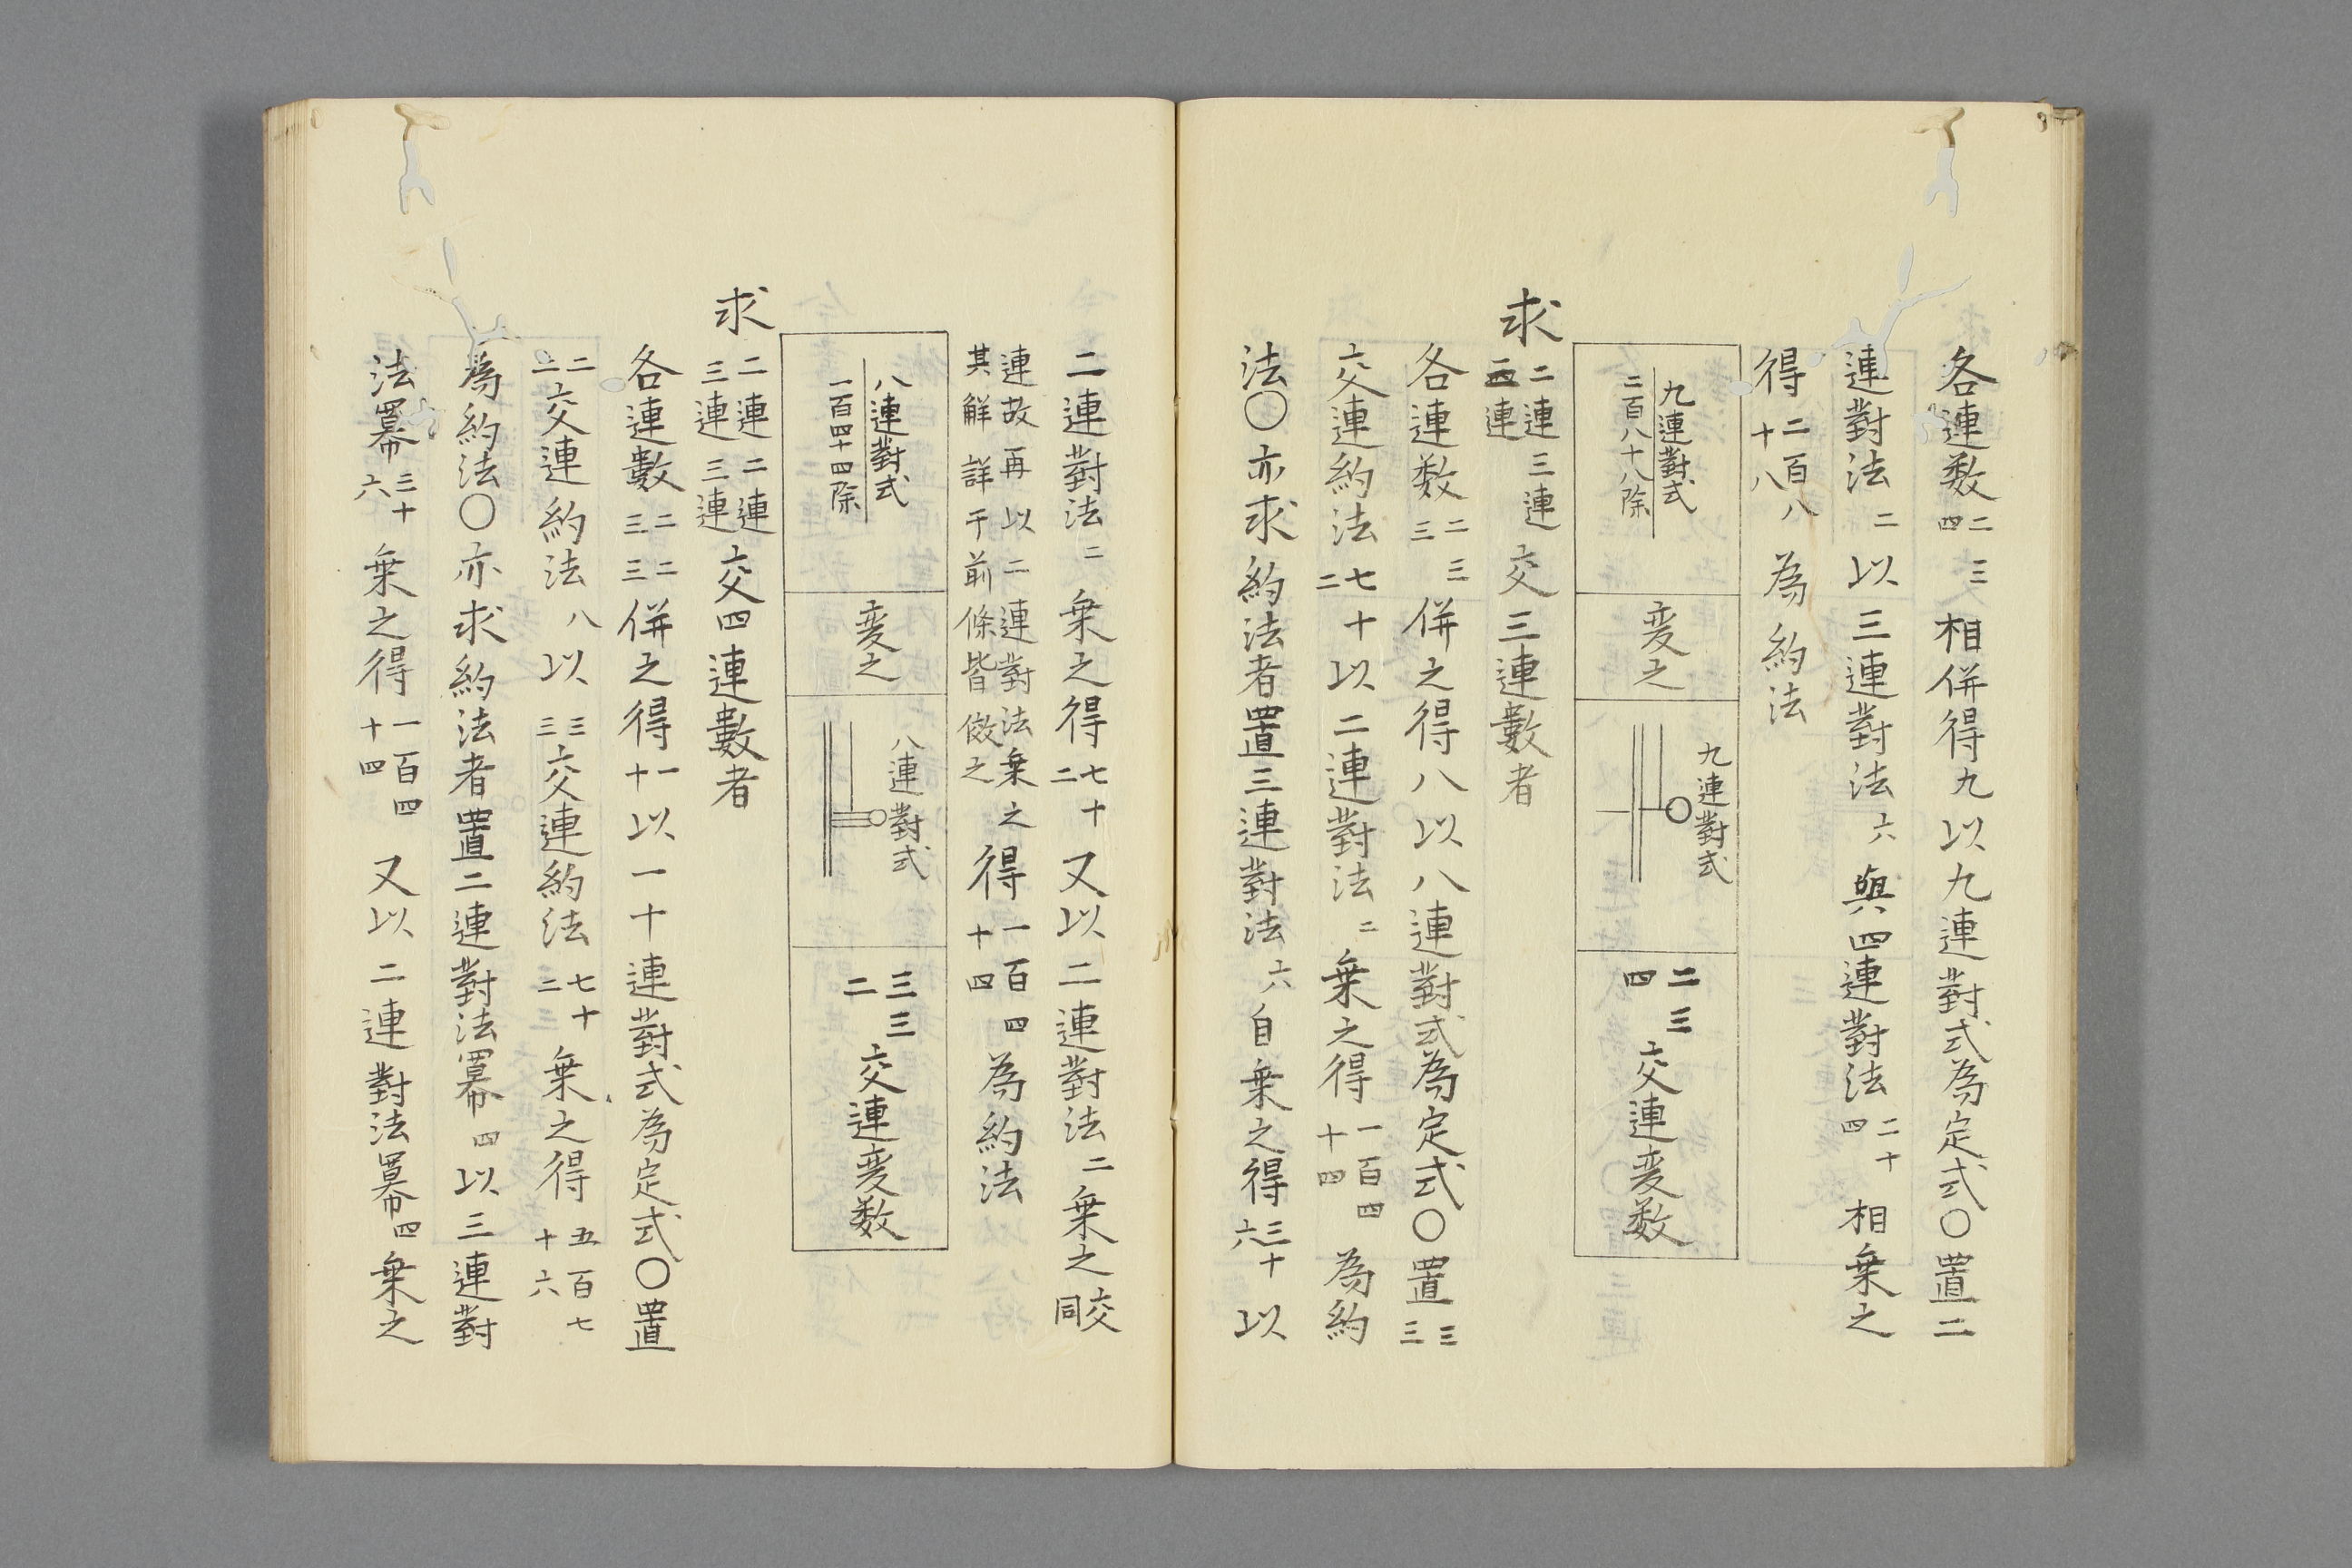 各連数二三四相併得九以九連對式為定式〇置二
連對法二以三連對法六與四連對法二十四相乗之
得二百八十八為約法
九連對式
二百八十八除
変之
九連對式
二三四交連変数
求二連三連三連交三連數者
各連数二三三併之得八以八連對式為定式〇置三三
交連約法七十二以二連對法二乗之得一百四十四為約
法〇亦求約法者置三連對法六自乗之得三十六以
二連對法二乗之得七十二又以二連對法二乗之交同
連故再以二連對法乗之
其解詳于前條皆倣之
得一百四十四為約法
八連對式
一百四十四除
変之
八連對式
三三二交連変数
求二連二連三連三連交四連數者
各連數二二三三併之得一十以一十連對式為定式〇置
二二交連約法八以三三交連約法七十二乗之得五百七十六
為約法〇亦求約法者置二連對法冪四以三連對
法冪三十六乗之得一百四十四又以二連對法冪四乗之